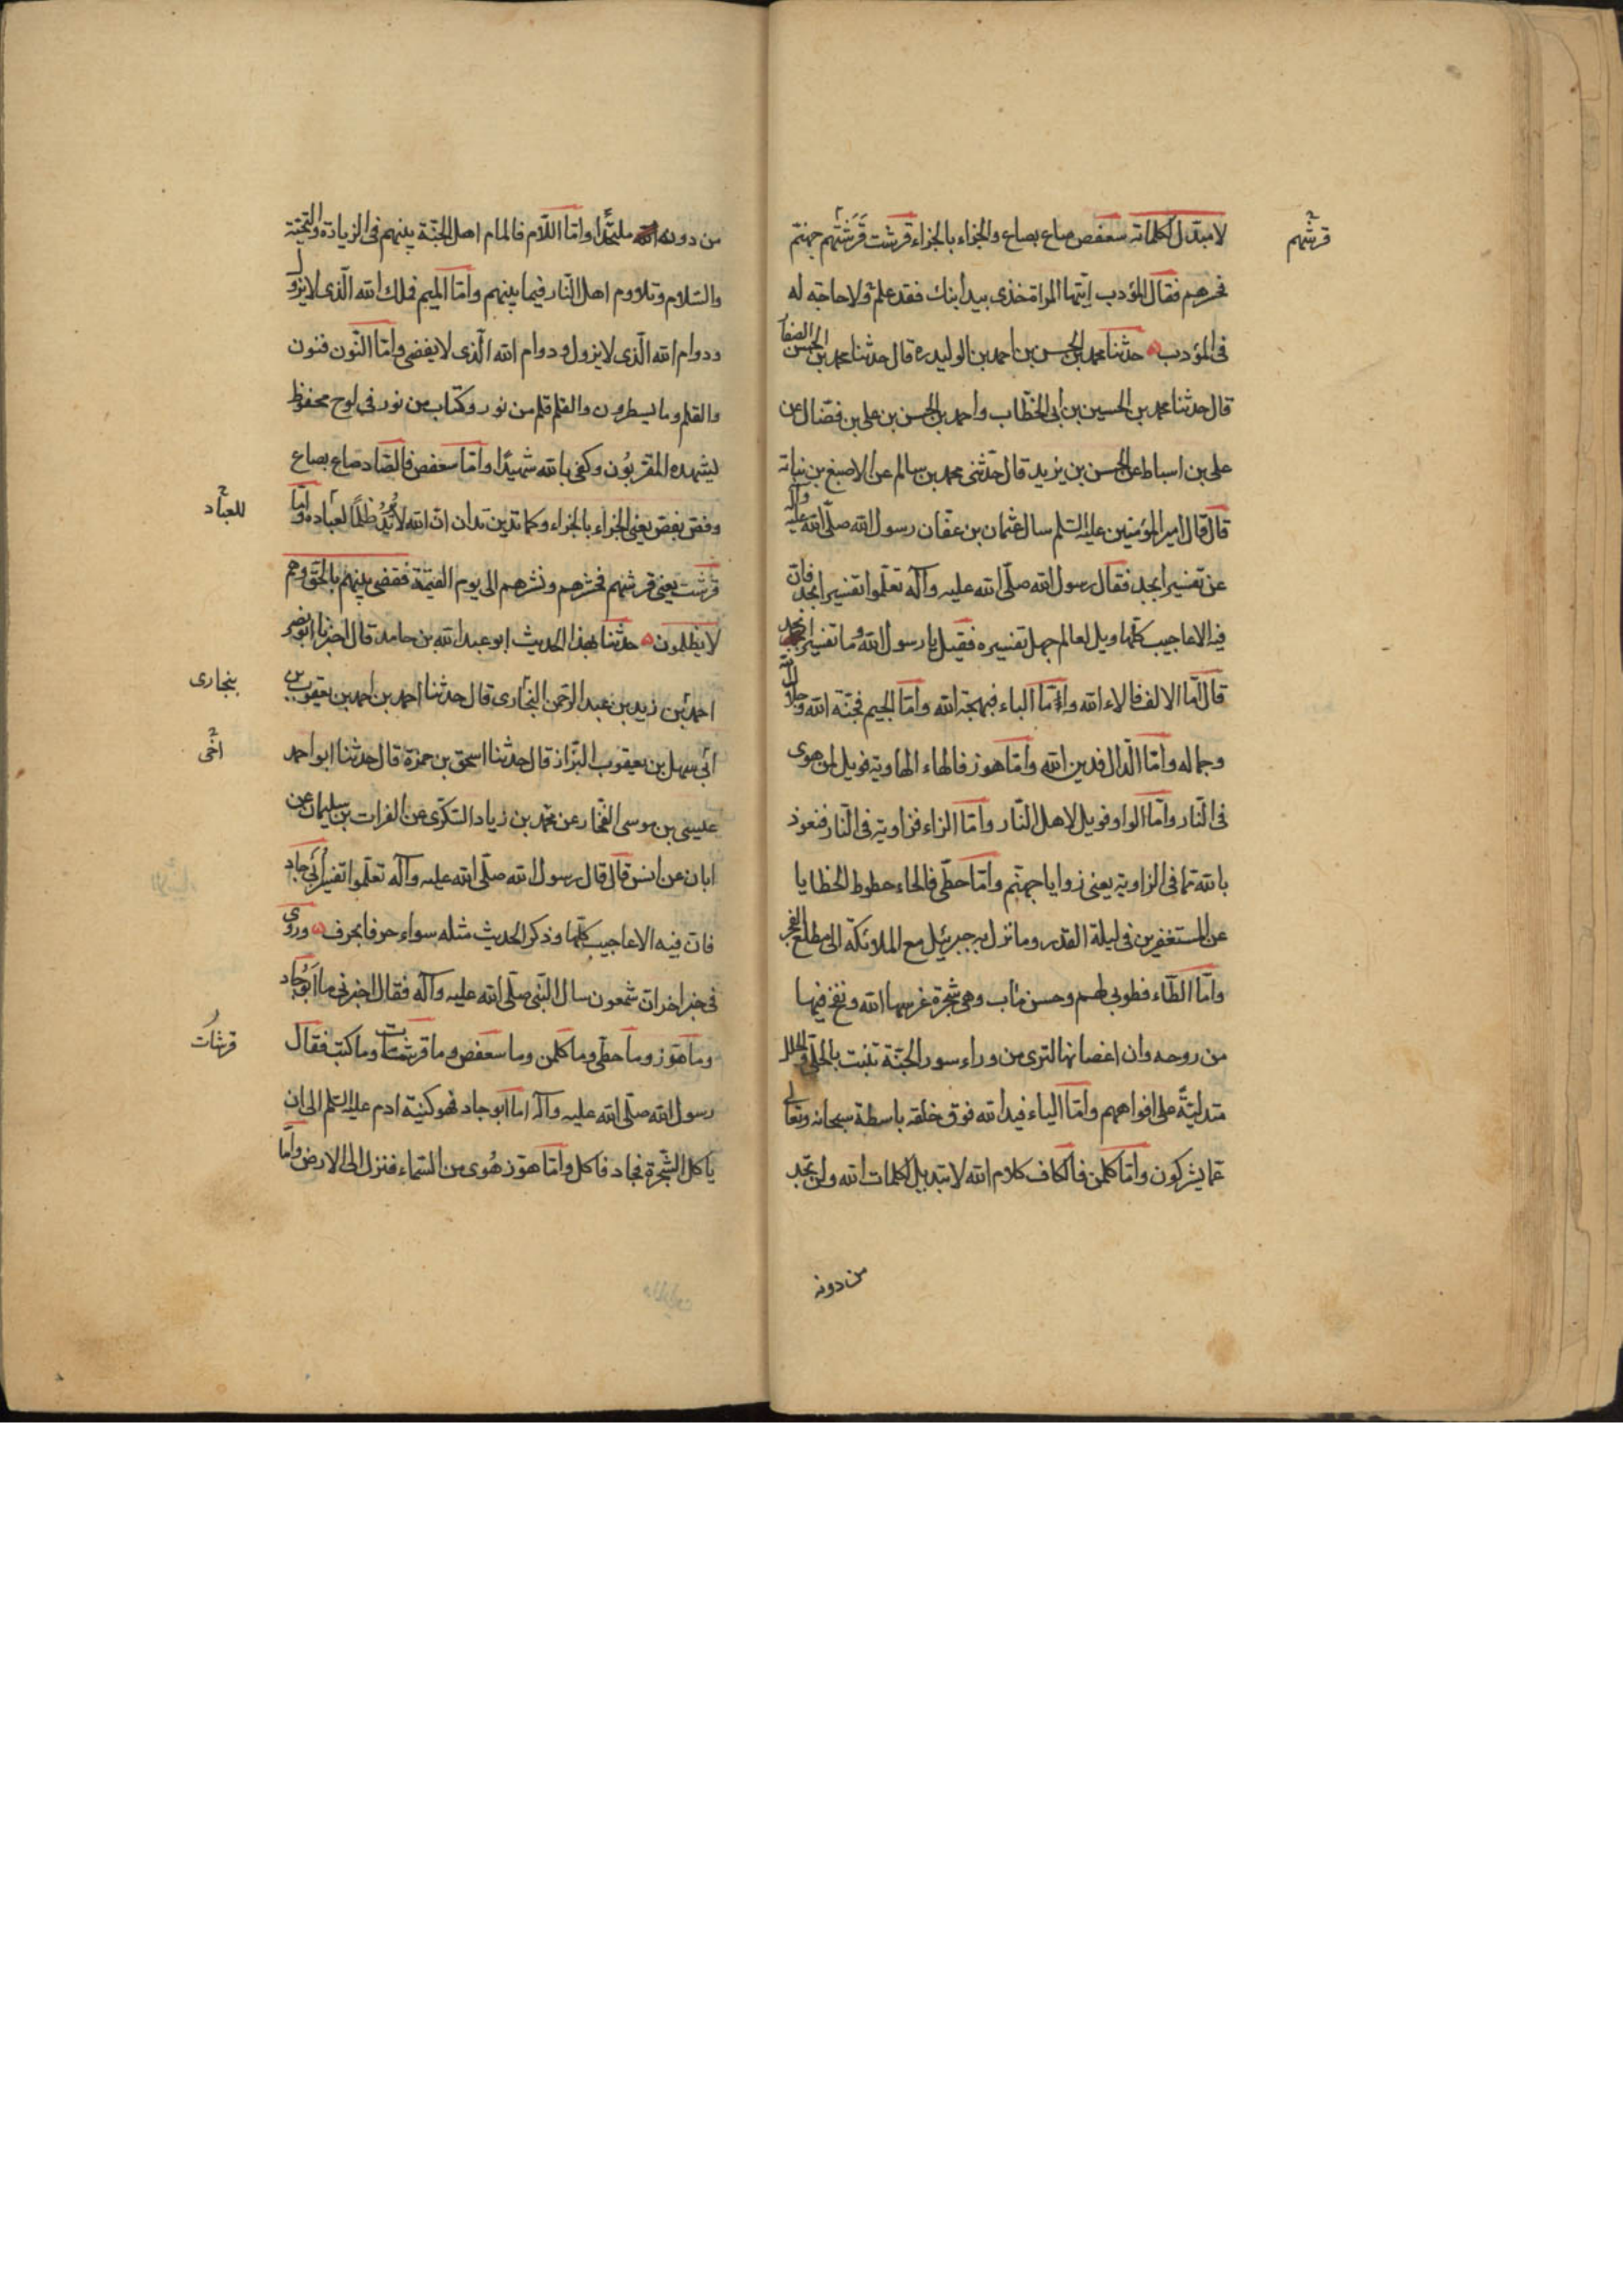 لا مبدّل لكلماته سعفص صاع بصاع والجزاء بالجزاء قرشت قَرَشَتهم جهنّم
قرشهم
فحشرهم فقال المؤدب ايّتها المراة خذى بيد ابنك فقد علم ولا حاجة له
فى المؤدب حدّثنا محمد بن الحسن بن احمد بن الوليد ره قال حدثنا محمد بن الحسن الصفار
قال حدثنا محمد بن الحسين بن أبى الخطّاب واحمد بن الحسن بن على بن فضّال عن
على بن اسباط عن الحسن بن يزيد قال حدّثنى محمد بن سالم عن الاصبغ بن نباتة
قال قال امير المؤمنين عليه السّلم سال عثمان بن عفّان رسول الله صلّى الله عليه واله
عن تفسير ابجد فقال رسول الله صلّى الله عليه وآله تعلّموا تفسير ابجد فانّ
فيه الاعاجيب كلّها ويل لعالم جهل تفسيره فقيل يا رسول الله وما تفسير ابجد
قال امّا الالف فالاء الله وامّا الباء فبهجة الله وامّا الجيم فجنّة الله وجلال الله
وجماله وامّا الدّال فدين الله وامّا هوز فالهاء الهاوية فويل لمن هوى
فى النّار وامّا الواو فويل لاهل النّار وامّا الزاء فزاوية فى النّار فنعوذ
بالله ممّا فى الزاوية يعنى زوايا جهنّم وامّا حطّى فالحاء حطوط الخطايا
عن المستغفرين فى ليلة القدر وما نزل به جبرئيل مع الملائكة الى مطلع الفجر
وامّا الطّاء فطوبى لهم وحسن ماب وهى شجرة غرسها الله ونفخ فيها
من روحه وان اغصانها لترى من وراء سور الجنّة تنبت بالحلى والحلل
متدليّةً على افواههم وامّا الياء فيد الله فوق خلقه باسطة سبحانه وتعالى
عمّا يشركون وامّا كلمن فالكاف كلام الله لا تبديل لكلمات الله ولن تجد
من دونه
من دونه ملتحدًا وامّا اللّام فالمام اهل الجنّة بينهم فى الزيادة والتحيّة
والسّلام وتلاووم اهل النّار فيما بينهم وامّا الميم فملك الله الّذى لا يزول
ودوام الله الّذى لا يزول ودوام الله الّذى لا يفضى وامّا النّون فنون
والقلم وما يسطرون والقلم قلم من نور وكتاب من نور فى لوح محفوظ
يشهده المقربُون وكفى بالله شهيدًا وامّا سعفص فالصّاد صاع بصاع
وفص بفص يعنى الجزاء بالجزاء وكما تدين تدان انّ الله لا يُريدُ ظلمًا لعباده وامّا
للعباد
قرشت يعنى قرشهم فحشرهم ونشرهم الى يوم القيمة فقضى بينهم بالحقّ وهم
لا يظلمون حدّثنا بهذا الحديث ابو عبد الله بن حامد قال اخبرنا ابو نصر
احمد بن زيد بن عبد الرّحمن البخارى قال حدثنا احمد بن احمد بن يعقوب بن
بنجارى
أبى سهل بن يعقوب البزّاز قال حدثنا اسحق بن حمزة قال حدثنا ابو احمد
اخى
عيسى بن موسى الفخّار عن محمّد بن زياد السّكّرى عن الفرات بن سليمان عن
ابان عن انس قال قال رسول الله صلّى الله عليه وآله تعلّموا تفسير أبى جاد
فانّ فيه الاعاجيب كلّها وذكر الحديث مثله سواء حرفا بحرف وروى
فى خبر اخر انّ شمعون سال النّبى صلّى الله عليه وآله فقال اخبرنى ما ابو جاد
وما هوّز وما حطّى وما كلمن وما سعفص وما قرشات وما كتب فقال
قرشات
رسول الله صلّى الله عليه وآله اما ابو جاد فهو كنية ادم عليه السّلم ابى ان
ياكل الشّجرة فجاد فاكل وامّا هوّز هُوى من السّماء فنزل الى الارض وامّا